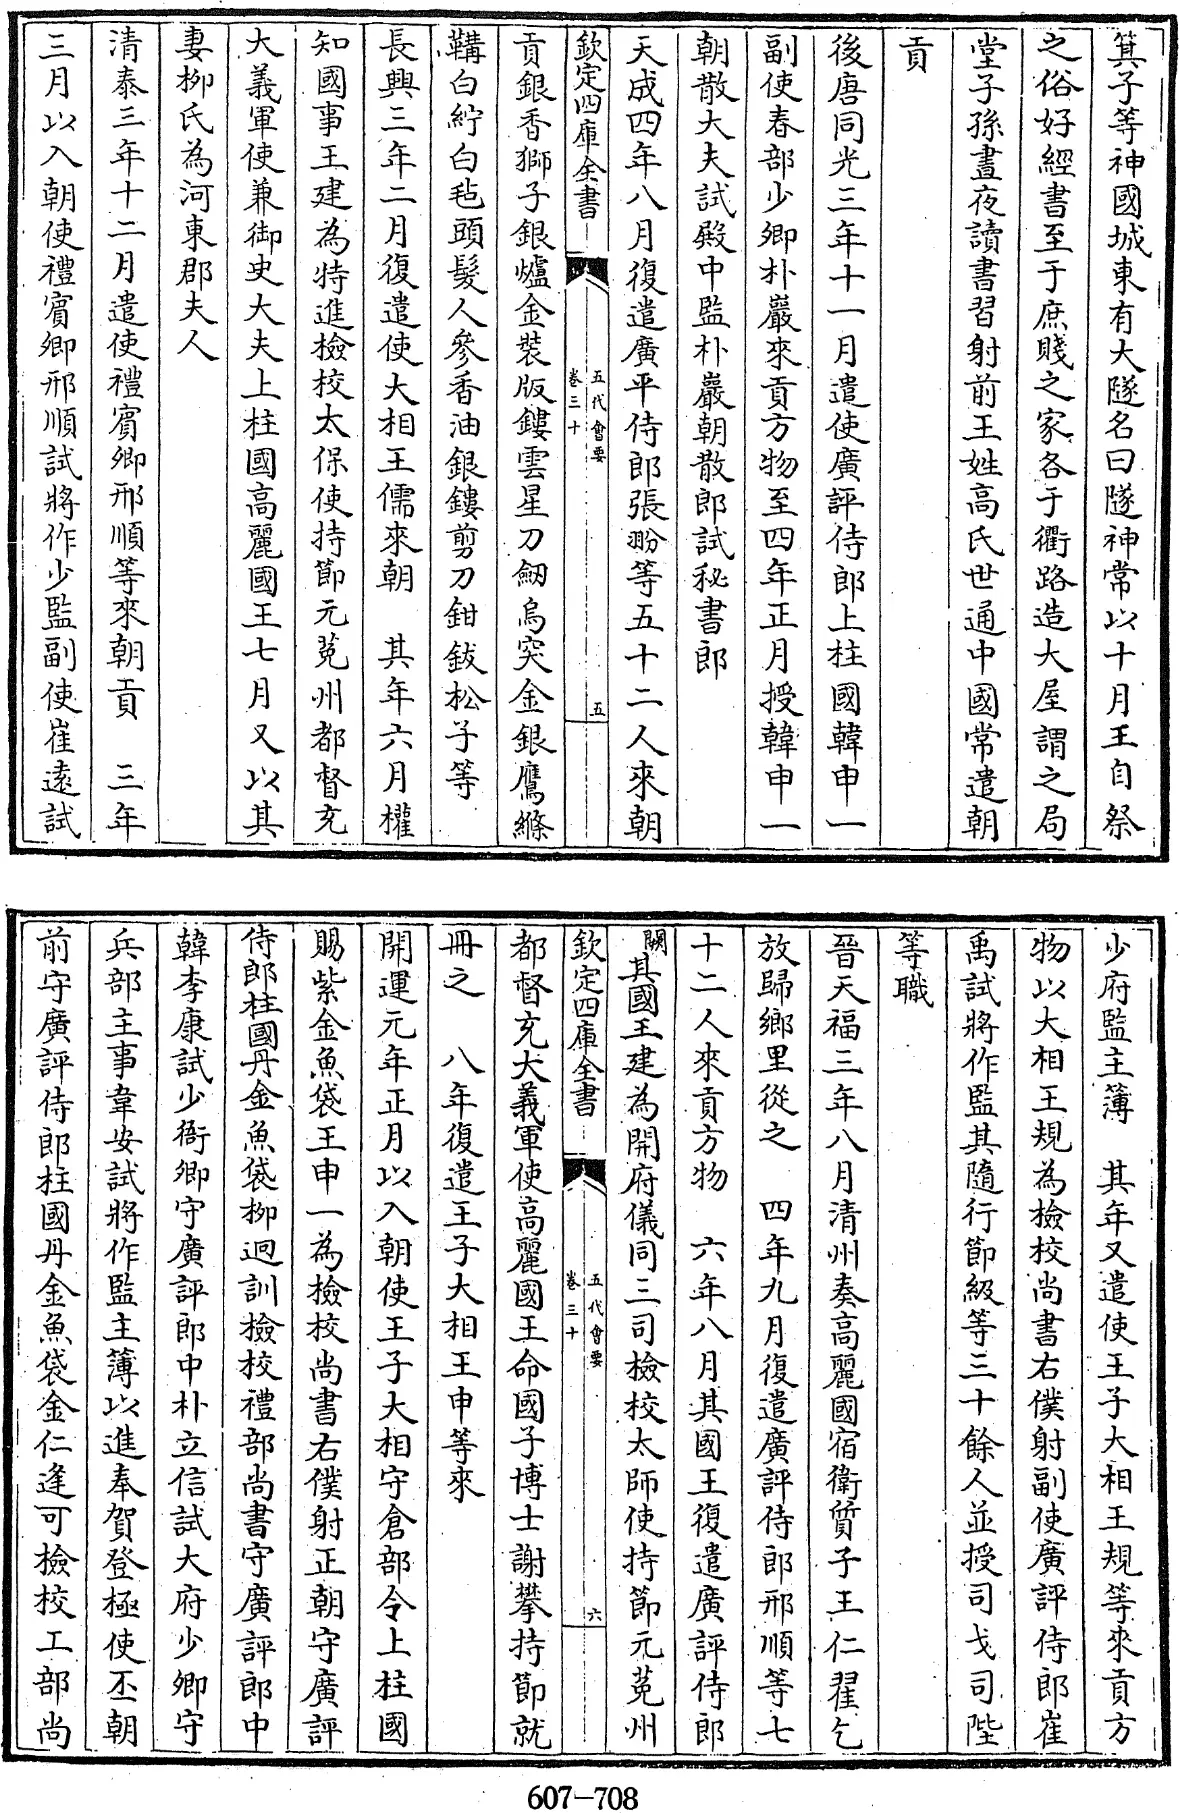 箕子等神國城東有大隧名曰隧神常以十月王自祭
之俗好經書至于庶賤之家各于衢路造大屋謂之局
堂子孫晝夜讀書習射前王姓高氏世通中國常遣朝
貢
後唐同光三年十一月遣使廣評侍郎上柱國韓申一
副使春部少卿朴巖來貢方物至四年正月授韓申一
朝散大夫試殿中監朴巖朝散郎試秘書郎
天成四年八月復遣廣平侍郎張翂等五十二人來朝
欽定四庫全書
五代會要
卷三十
五
貢銀香獅子銀爐金裝版鏤雲星刀劒烏突金銀鷹縧
鞲白紵白毡頭髮人參香油銀鏤剪刀鉗鈸松子等
長興三年二月復遣使大相王儒來朝　其年六月權
知國事王建為特進檢校太保使持節元菟州都督充
大義軍使兼御史大夫上柱國高麗國王七月又以其
妻柳氏為河東郡夫人
清泰三年十二月遣使禮賓卿邢順等來朝貢　三年
三月以入朝使禮賓卿邢順試將作少監副使崔遠試
少府監主簿　其年又遣使王子大相王規等來貢方
物以大相王規為檢校尚書右僕射副使廣評侍郎崔
禹試將作監其隨行節級等三十餘人並授司戈司陛
等職
晉天福三年八月清州奏高麗國宿衛質子王仁翟乞
放歸鄉里從之　四年九月復遣廣評侍郎邢順等七
十二人來貢方物　六年八月其國王復遣廣評侍郎
闕其國王建為開府儀同三司檢校太師使持節元菟州
欽定四庫全書
五代會要
卷三十
六
都督充大義軍使高麗國王命國子博士謝攀持節就
冊之　八年復遣王子大相王申等來
開運元年正月以入朝使王子大相守倉部令上柱國
賜紫金魚袋王申一為檢校尚書右僕射正朝守廣評
侍郎柱國丹金魚袋柳迥訓檢校禮部尚書守廣評郎中
韓李康試少衙卿守廣評郎中朴立信試大府少卿守
兵部主事韋安試將作監主簿以進奉賀登極使丕朝
前守廣評侍郎柱國丹金魚袋金仁逢可檢校工部尚
607-708